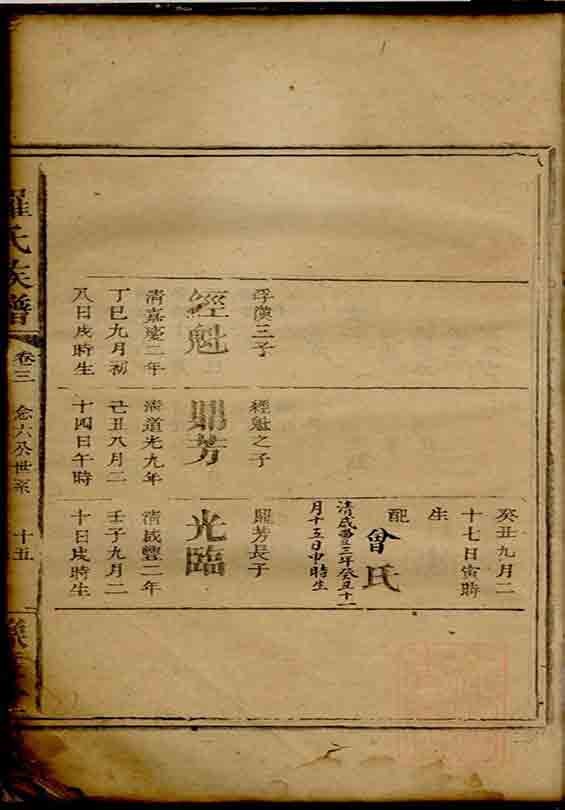 孚漢三子
經魁
清嘉慶二年
丁巳九月初
八日戌時生
經魁之子
鼎芳
清道光九年
己丑八月二
十四日午時
癸丑九月二
十七日寅時
生
配曾氏
清咸豐三年癸丑十一
月十五日申時生
鼎芳長子
光臨
清咸豐二年
壬子九月二
十日戌時生
羅氏族譜
卷三 念六公世系 十五